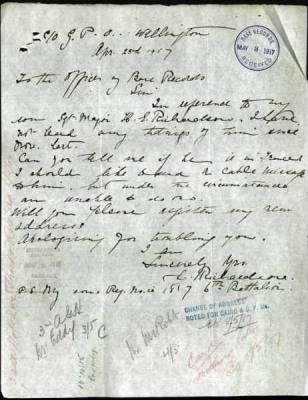 C/o G.P.O. Wellington
Apr 23rd 1917
BASE RECORDS
MAY 3, 1917
RECEIVED
To the Officer of Base Records
Sir
In reference to my
son Sgt Major H. E. Richardson. I have
not heard any tidings of him since
Nov. last.
Can you tell me if he is in France
I should like to send a cable message
to him. but under the circumstances
am unable to do so.
Will you please register my new
address.
Apologising for troubling you.
I am
Sincerely Yrs
C. Richardson.
P.S. My sons Reg. No is 1517 6th Battalion.
CHANGE OF ADDRESS
NOTED FOR CAIRO & D.P.O.
4/5